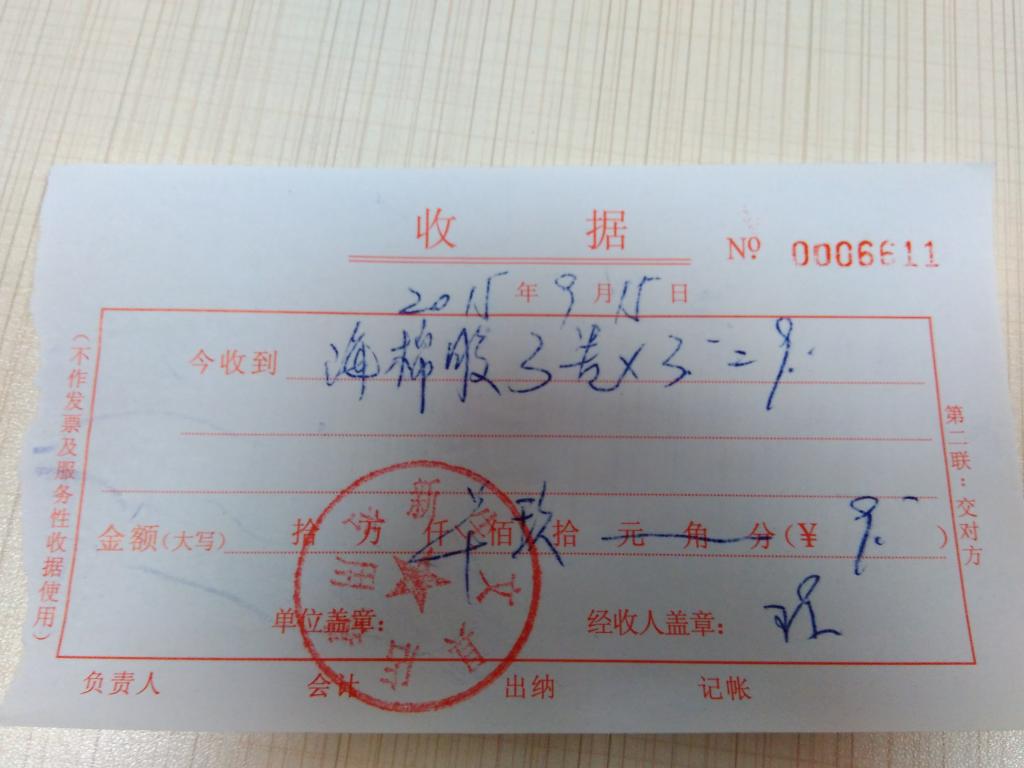 收 据
№ 0006611
2015年9月15日
今收到 海棉胶3卷×3.-=9.
金额(大写) 拾 万 仟 佰 拾 元 角 分(¥ 9.- )
单位盖章: 经收人盖章:
负责人 会计 出纳 记帐
(不作发票及服务性收据使用)
第二联:交对方